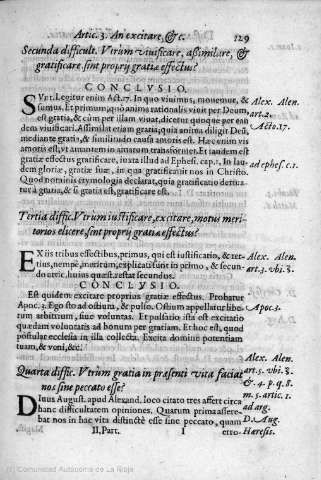 Artic. 3. An excitare, &c. 129
Secunda difficult. Vtrum viuificare, assimilare, &
gratificare, sint proprij gratiæ effectus?
CONCLVSIO.
SVpt. Legitur enim Act. 17. In quo viuimus, mouemur, &
sumus. Et primum, quo anima rationalis viuit per Deum,
est gratia, & cùm per illam viuat, dicetur quoque per ean
dem viuificari. Assimilat etiam gratia; quia anima diligit Deū,
mediante gratia, & similitudo causa amoris est. Hæc enim vis
amoris est, vt amantem in amatum transformet. Et tandem est
gratiæ effectus gratificare, iuxta illud ad Ephes. cap. 1. In lau-
dem gloriæ, gratiæ suæ, in qua gratificauit nos in Christo.
Quod nominis etymologia declarat, quia gratificatio deriua-
tur à gratia, & si gratia est, gratificare est.
Alex. Alen.
art. 2.
Acto. 17.
ad ephes. c. 1.
Tertia diffic. Vtrum iustificare, excitare, motus meri-
torios elicere, sint proprij gratiæ effectus?
EX iis tribus effectibus, primus, qui est iustificatio, & ter-
tius, nempè, meritum, explicati sunt in primo, & secun-
do artic. huius quæst. restat secundus.
Alex. Alen.
art. 3. vbi. s.
CONCLVSIO.
Est quidem excitare proprius gratiæ effectus. Probatur
Apoc. 3. Ego sto ad ostium, & pulso. Ostium appellatur libe-
rum arbitrium, siue voluntas. Et pulsatio ista est excitatio
quædam voluntatis ad bonum per gratiam. Et hoc est, quod
postulat ecclesia in illa collecta. Excita domine potentiam
tuam, & veni, &c.
Apoc. 3.
Quarta diffic. Vtrum gratia in præsenti vita faciat
nos sine peccato esse?
DIuus August. apud Alexand. loco citato tres affert circa
hanc difficultatem opiniones. Quarum prima assere-
bat nos in hac vita distinctè esse sine peccato, quam
Alex. Alen.
art. 5. vbi. s.
& 4. p. q. 8.
m. 5. artic. 1.
ad arg.
D. Aug.
Hæresis.
II. Part. I etto-
(c) Comunidad Autónoma de La Rioja